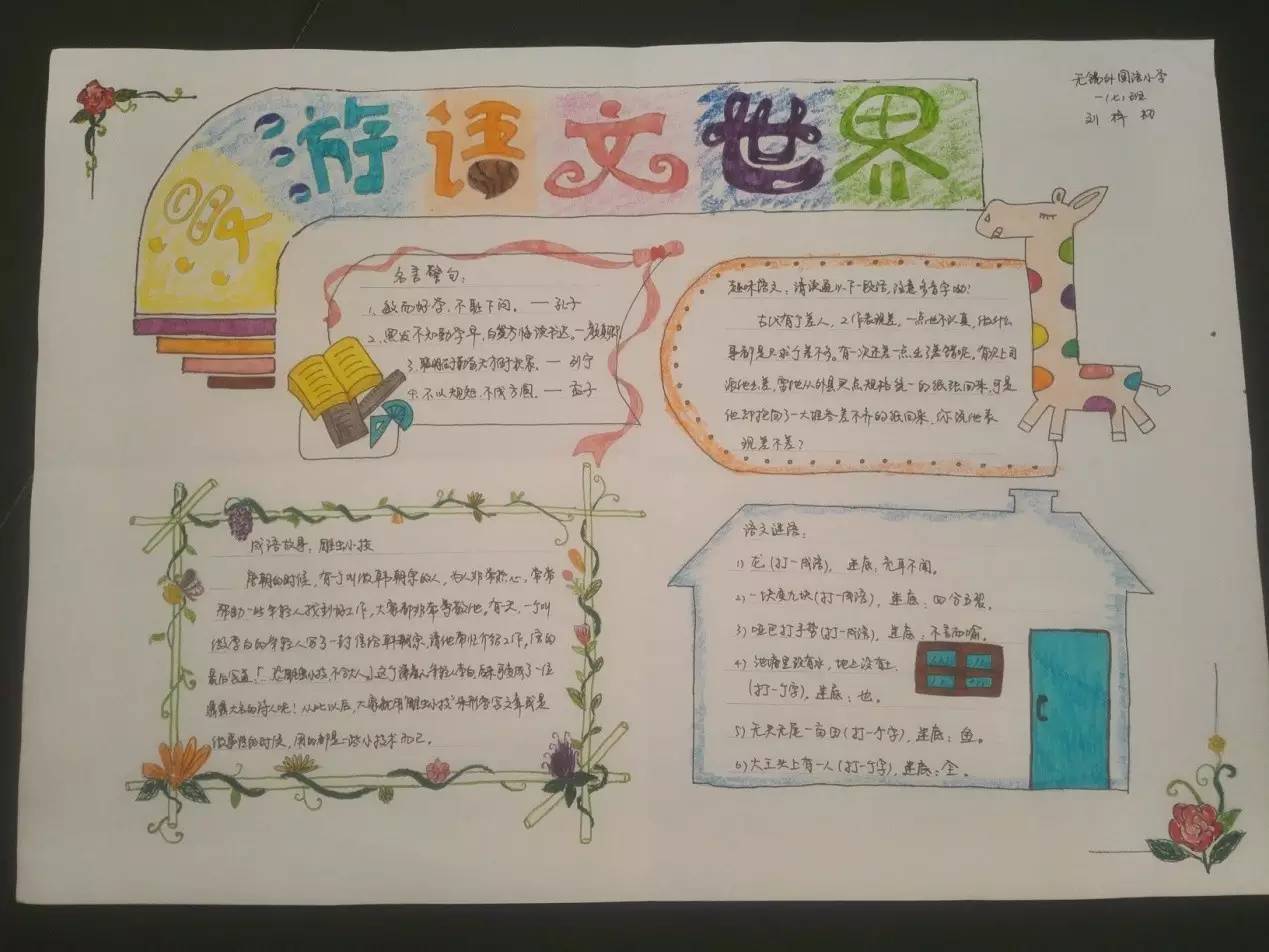 游语文世界
无锡外国语小学
一(七)班
刘梓初
名言警句:
1、敏而好学,不耻下问。——孔子
2、黑发不知勤学早,白首方悔读书迟。——颜真卿
3、聪明在于勤奋,天才在于积累。——列宁
4、不以规矩,不成方圆。——孟子
趣味语文:请读通以下一段话,注意多音字哟!
古代有个差人,工作表现差,一点也不认真,做什么
事都是只求个差不多。有一次还差一点,出了差错呢。有次上司
派他出差,要他从外县买点规格统一的纸张回来,可是
他却抱回了一大堆参差不齐的纸回来,你说他表
现差不差?
成语故事:雕虫小技
唐朝的时候,有个叫做韩朝宗的人,为人非常热心,常常
帮助一些年轻人找到好工作,大家都非常尊敬他。有一天,一个叫
做李白的年轻人写了一封信给韩朝宗,请他帮忙介绍工作,信的
最后写道:「恐雕虫小技,不合大人。」这个谦虚的年轻人李白,后来可变成了一位
鼎鼎大名的诗人呢!从此以后,大家就用“雕虫小技”来形容写文章或是
做事情的时候,用的都是一些小技术而已。
语文谜语:
1)龙(打一成语),谜底:充耳不闻。
2)一块变九块(打一成语),谜底:四分五裂。
3)哑巴打手势(打一成语),谜底:不言而喻。
4)池塘里没有水,地上没有土.
(打一个字),谜底:也。
5)无头无尾一亩田(打一个字),谜底:鱼。
6)大王头上有一人(打一个字),谜底:全。